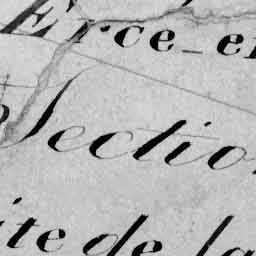 Erce-e
Sectio
ite de la